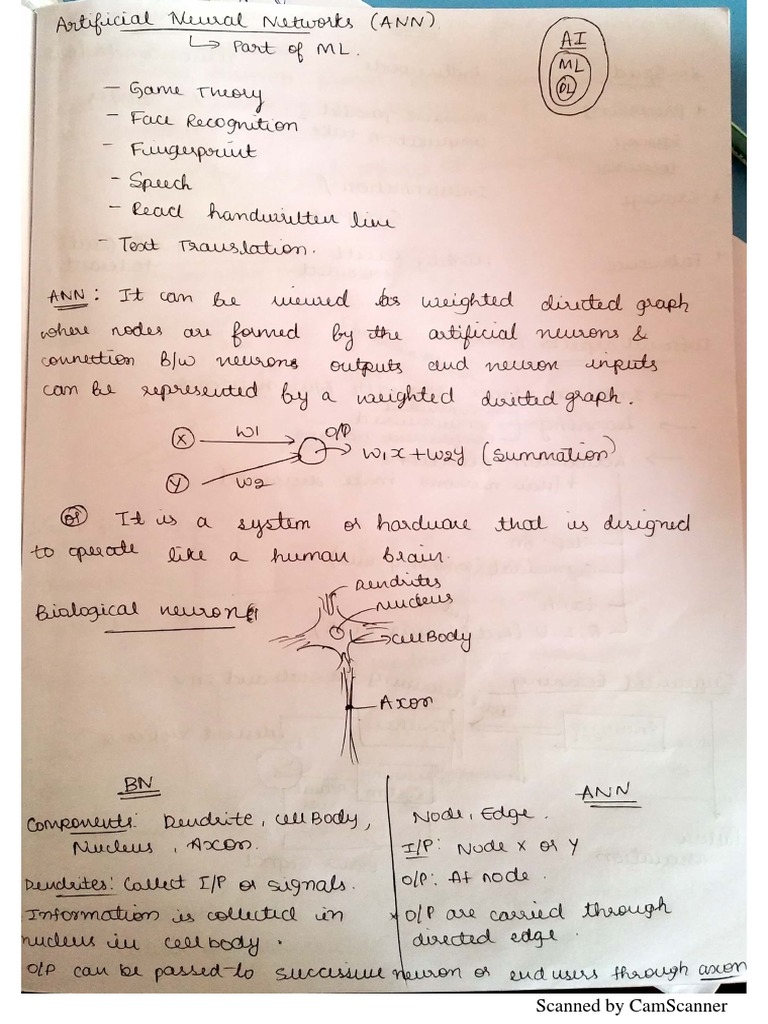 Artificial Neural Networks (ANN).
↳ Part of ML.
AI
ML
DL
- Game Theory
- Face Recognition
- Fingerprint
- Speech
- Read handwritten line
- Text Translation.
ANN: It can be viewed as weighted directed graph
where nodes are formed by the artificial neurons &
connection B/w neurons outputs and neuron inputs
can be represented by a weighted directed graph.
X W1 O/P
W1x + W2y (Summation)
Y W2
or It is a system or hardware that is designed
to operate like a human brain.
Dendrites
Nucleus
Biological neuron
cell Body
Axon
BN ANN
Components: Dendrite, cell Body,
Nucleus, Axon.
Node, Edge.
I/P: Node X or Y
Dendrites: Collect I/P or signals.
O/P: At node.
Information is collected in
nucleus in cell body.
O/P are carried through
directed edge.
O/P can be passed to successive neuron or end users through axon
Scanned by CamScanner